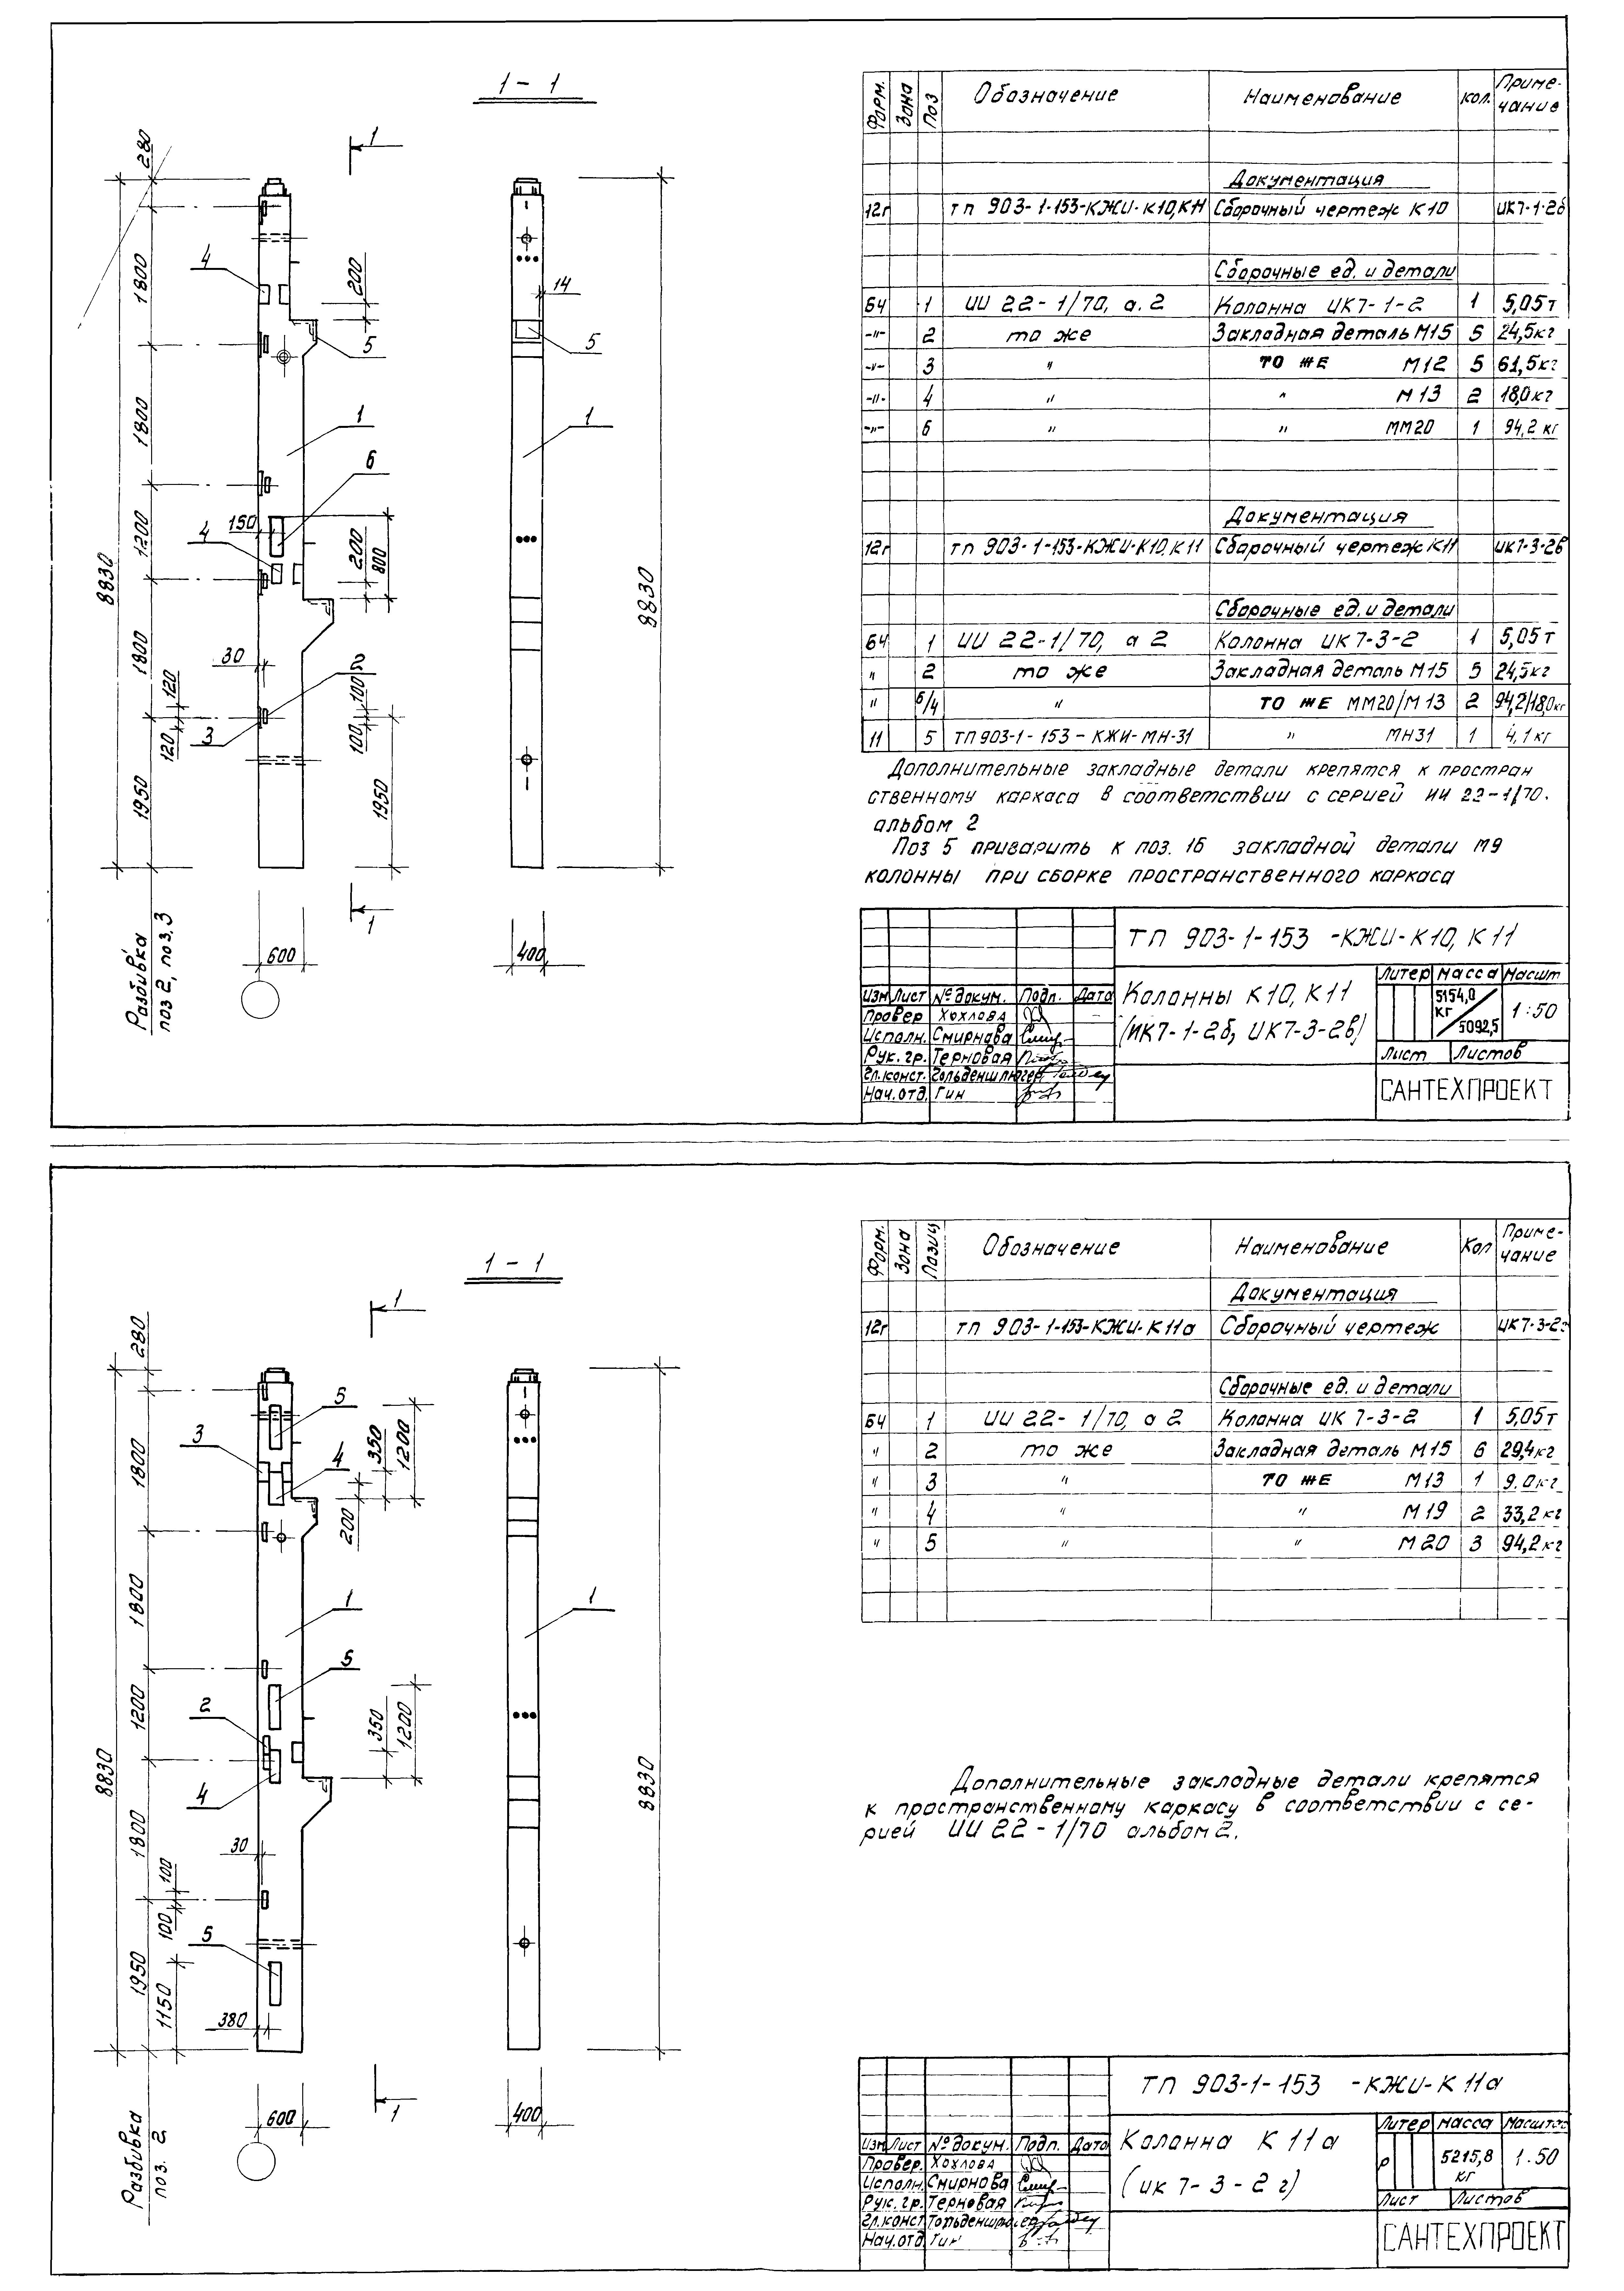 1 - 1
1
280
1800
1800
1200
1800
1950
8830
4
200
5
1
6
150
4
200
800
30
2
120
120
3
100
100
1950
1
600
Разбивка
поз 2, поз.3
14
5
1
8830
400
Форм. Зона Поз Обозначение Наименование Кол. Приме-чание
Документация
12г ТП 903-1-153-КЖИ-К10,К11 Сборочный чертеж К10 ИК7-1-2б
Сборочные ед. и детали
БЧ 1 ИИ 22-1/70, а.2 Колонна ИК7-1-2 1 5,05т
-"- 2 то же Закладная деталь М15 5 24,5кг
-"- 3 " ТО ЖЕ М12 5 61,5кг
-"- 4 " " М13 2 18,0кг
-"- 6 " " ММ20 1 94,2 кг
Документация
12г ТП 903-1-153-КЖИ-К10,К11 Сборочный чертеж К11 ИК7-3-2в
Сборочные ед. и детали
БЧ 1 ИИ 22-1/70, а 2 Колонна ИК7-3-2 1 5,05т
" 2 то же Закладная деталь М15 5 24,5кг
" 6/4 " ТО ЖЕ ММ20/М13 2 94,2/18,0кг
11 5 ТП903-1-153-КЖИ-МН-31 " МН31 1 4,1кг
Дополнительные закладные детали крепятся к простран
ственному каркаса в соответствии с серией ИИ 22-1/70.
альбом 2
Поз 5 приварить к поз. 16 закладной детали М9
колонны при сборке пространственного каркаса
ТП 903-1-153 -КЖИ-К10, К11
Изм Лист №докум. Подп. Дата
Провер Хохлова
Исполн. Смирнова
Рук. гр. Терновая
Гл.конст. Гольденшлюгер
Нач.отд. Гин
Колонны К10, К11
(ИК7-1-2б, ИК7-3-2в)
Литер Масса Масшт
5154,0
кг
5092,5
1:50
Лист Листов
САНТЕХПРОЕКТ
1 - 1
1
280
1800
1800
1200
1800
1950
1150
8830
5
3
4
350
1200
200
1
5
2
350
1200
4
30
100
100
5
380
1
600
Разбивка
поз. 2
1
8830
400
Форм. Зона Позиц Обозначение Наименование Кол Приме-чание
Документация
12г ТП 903-1-153-КЖИ-К11а Сборочный чертеж ИК7-3-2г
Сборочные ед. и детали
БЧ 1 ИИ 22-1/70, а 2 Колонна ИК 7-3-2 1 5,05т
" 2 то же Закладная деталь М15 6 29,4кг
" 3 " ТО ЖЕ М13 1 9.0кг
" 4 " " М19 2 33,2кг
" 5 " " М20 3 94,2кг
Дополнительные закладные детали крепятся
к пространственному каркасу в соответствии с се-
рией ИИ 22-1/70 альбом 2.
ТП 903-1-153 -КЖИ-К 11а
Изм Лист №докум. Подп. Дата
Провер. Хохлова
Исполн. Смирнова
Рук. гр. Терновая
Гл.конст Гольденшлюгер
Нач.отд Гин
Колонна К 11а
(ИК 7-3-2 г)
Литер Масса Масштаб
Р
5215,8
кг
1:50
Лист Листов
САНТЕХПРОЕКТ